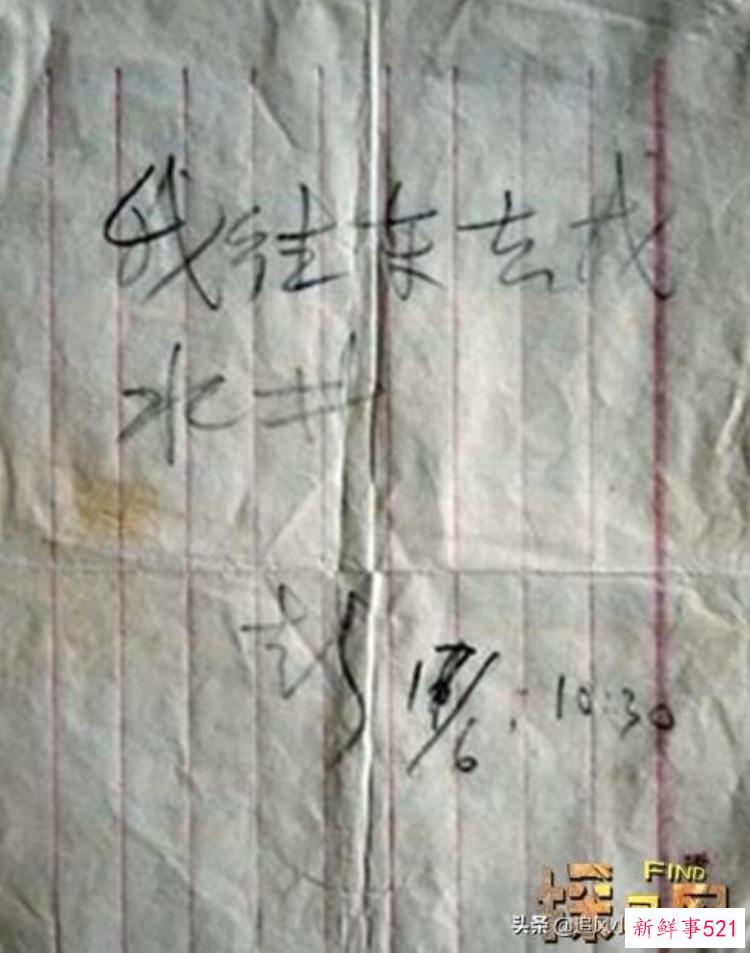 我往东去找
水井
彭 17/6: 10:30
FIND
探
头条 @追风小
新鲜事521